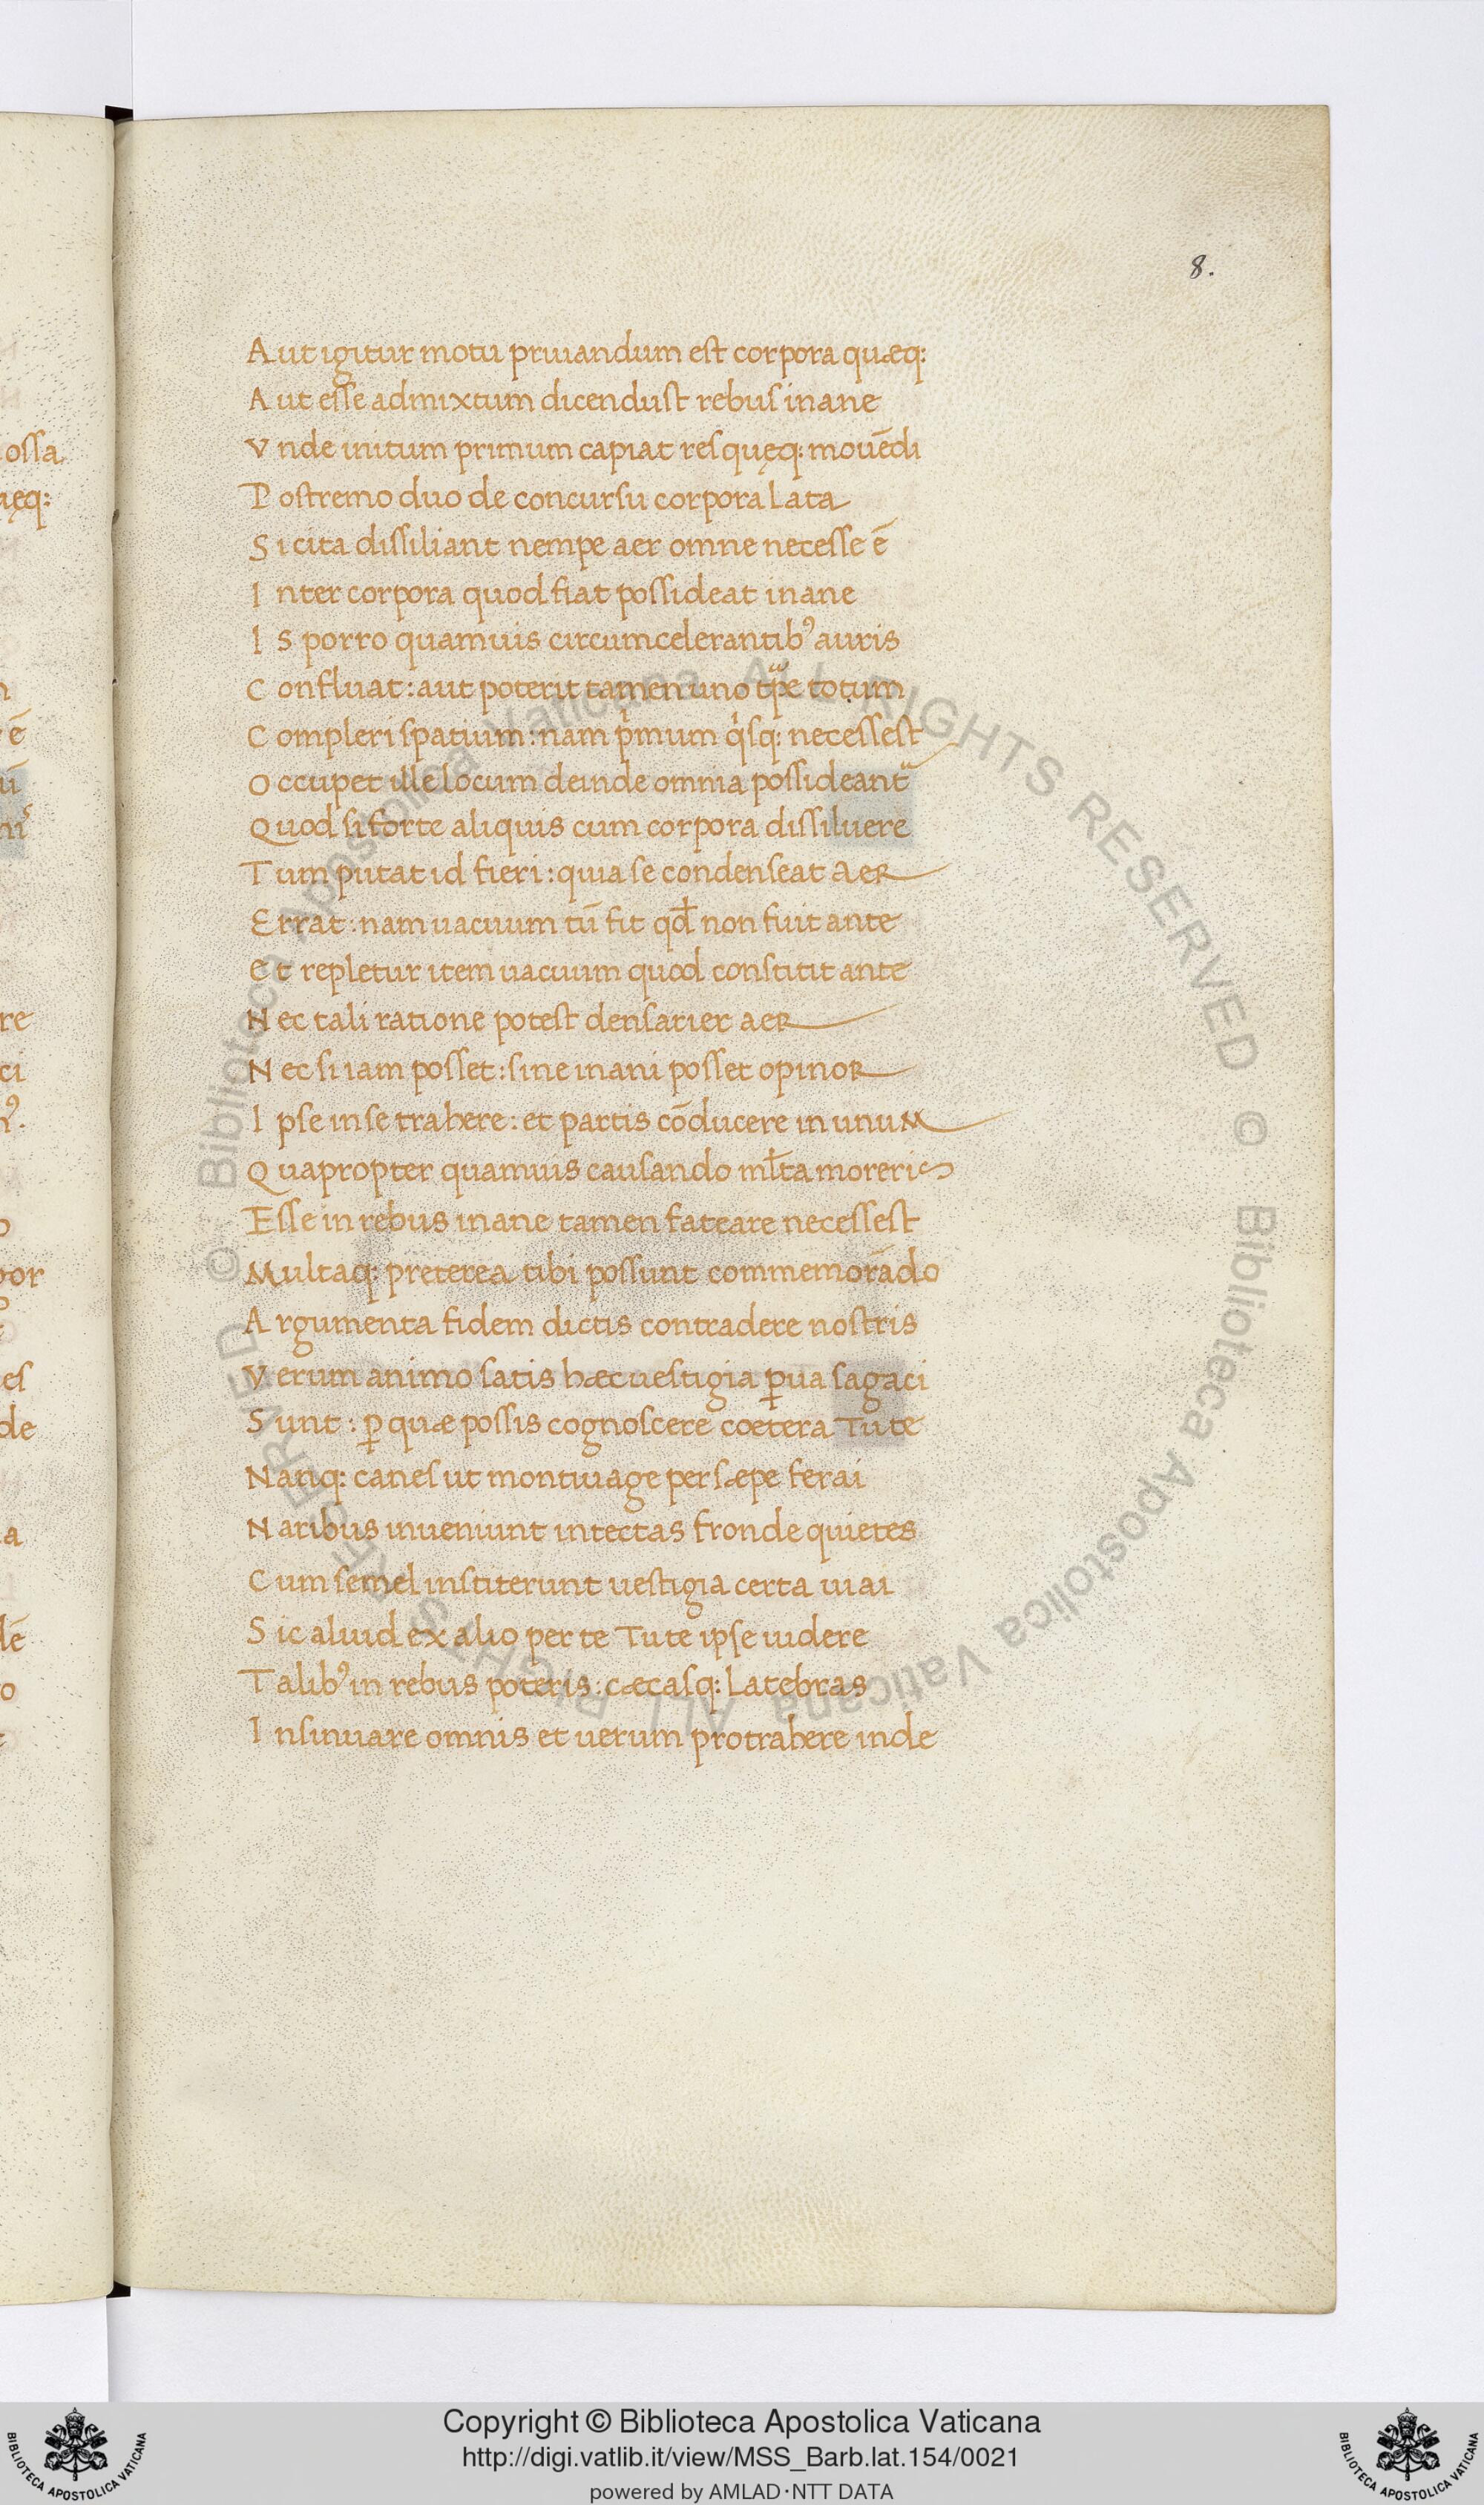 8.
ossa
Aut igitur motu priuandum est corpora quæq:
Aut esse admixtum dicendust rebus inane
Vnde initum primum capiat res quęq: mouēdi
Postremo duo de concursu corpora lata
Si cita dissiliant nempe aer omne necesse ē
Inter corpora quod fiat possideat inane
IS porro quamuis circumcelerantibꝰ auris
Confluat: aut poterit tamen uno tp̄e totum
Compleri spatium: nam pͥmum qͥsq: necessest
Occupet ille locum deinde omnia possideant᷑
Quod si forte aliquis cum corpora dissiluere
Tum putat id fieri: quia se condenseat aer
Errat: nam uacuum tū fit qđ non fuit ante
Et repletur item uacuum quod constitit ante
Nec tali ratione potest densarier aer
Nec si iam posset: sine inani posset opinor
Ipse in se trahere: et partis cōducere in unum
Quapropter quamuis causando ml̄ta moreris
Esse in rebus inane tamen fateare necessest
Multaq: preterea tibi possunt commemorādo
Argumenta fidem dictis contradere nostris
Verum animo satis hæc uestigia ꝑua sagaci
Sunt: ꝑ quæ possis cognoscere coetera Tute
Nanq: canes ut montiuage persæpe ferai
Naribus inueniunt intectas fronde quietes
Cum semel institerunt uestigia certa uiai
Sic aluid ex alio per te Tute ipse uidere
Talibꝰ in rebus poteris: cæcasq: latebras
Insinuare omnis et uerum protrahere inde
© Biblioteca Apostolica Vaticana ALL RIGHTS RESERVED
© Biblioteca Apostolica Vaticana ALL RIGHTS RESERVED
Copyright © Biblioteca Apostolica Vaticana
http://digi.vatlib.it/view/MSS_Barb.lat.154/0021
powered by AMLAD·NTT DATA
BIBLIOTECA APOSTOLICA VATICANA
BIBLIOTECA APOSTOLICA VATICANA